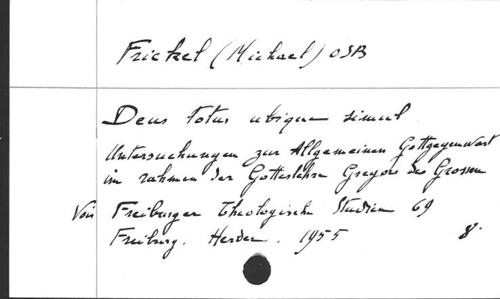 Frickel (Michael) OSB
Deus totus ubique simul
Untersuchungen zur Allgemeinen Gottgegenwart
im rahmen der Gotteslehre Gregors des Grossen
Voir Freiburger theologische Studien 69
Freiburg. Herder. 1955 8°